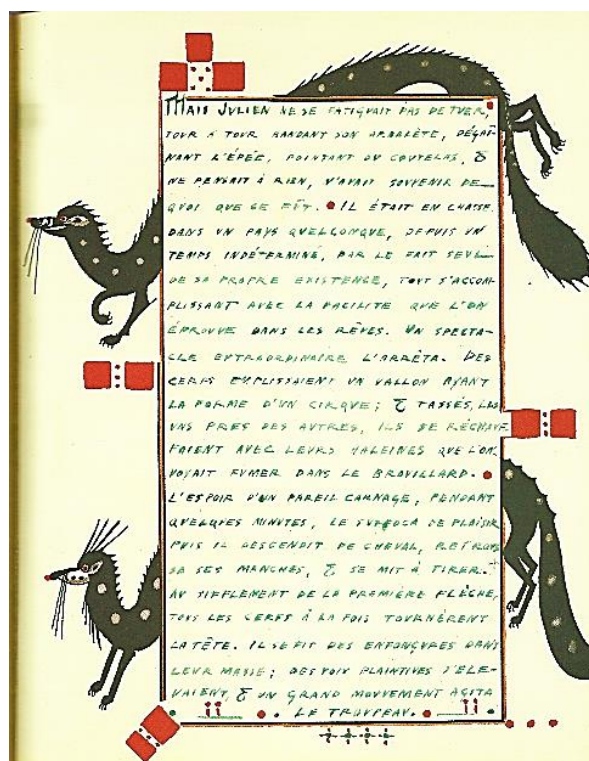 MAIS JULIEN NE SE FATIGUAIT PAS DE TUER,
TOUR À TOUR BANDANT SON ARBALÈTE, DÉGAI-
NANT L'ÉPÉE, POINTANT DU COUTELAS, &
NE PENSAIT À RIEN, N'AVAIT SOUVENIR DE
QUOI QUE CE FÛT. IL ÉTAIT EN CHASSE
DANS UN PAYS QUELCONQUE, DEPUIS UN
TEMPS INDÉTERMINÉ, PAR LE FAIT SEUL
DE SA PROPRE EXISTENCE, TOUT S'ACCOM-
PLISSANT AVEC LA FACILITE QUE L'ON
ÉPROUVE DANS LES RÊVES. UN SPECTA-
CLE EXTRAORDINAIRE L'ARRÊTA. DES
CERFS EMPLISSAIENT UN VALLON AYANT
LA FORME D'UN CIRQUE; & TASSÉS, LES
UNS PRES DES AUTRES, ILS SE RÉCHAUF-
FAIENT AVEC LEURS HALEINES QUE L'ON
VOYAIT FUMER DANS LE BROUILLARD.
L'ESPOIR D'UN PAREIL CARNAGE, PENDANT
QUELQUES MINUTES, LE SUFFOCA DE PLAISIR
PUIS IL DESCENDIT DE CHEVAL, RETROUS
SA SES MANCHES, & SE MIT À TIRER.
AU SIFFLEMENT DE LA PREMIÈRE FLÈCHE,
TOUS LES CERFS À LA FOIS TOURNÈRENT
LA TÊTE. IL SE FIT DES ENFONÇURES DANS
LEUR MASSE; DES VOIX PLAINTIVES S'ÉLE-
VAIENT, & UN GRAND MOUVEMENT AGITA
LE TROUPEAU.